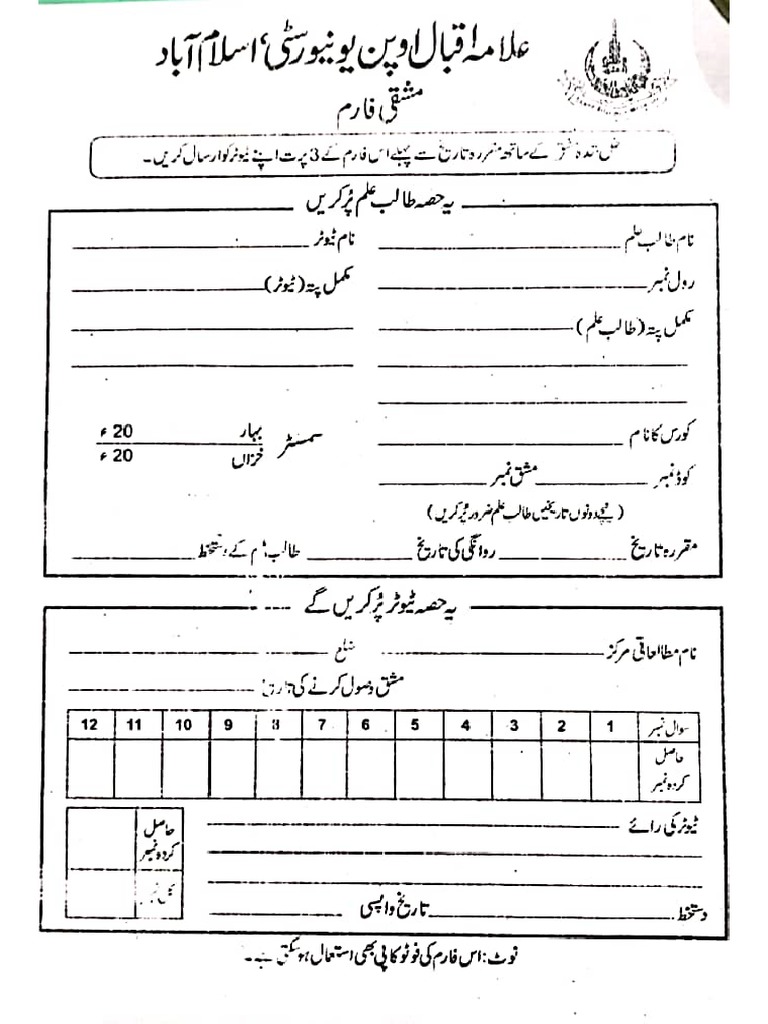 علامہ اقبال اوپن یونیورسٹی، اسلام آباد
مشقی فارم
حل شدہ مشق کے ساتھ مقررہ تاریخ سے پہلے اس فارم کے 3 پرت اپنے ٹیوٹر کو ارسال کریں۔
یہ حصہ طالب علم پُر کریں
نام طالب علم نام ٹیوٹر
رول نمبر مکمل پتہ (ٹیوٹر)
مکمل پتہ (طالب علم)
کورس کا نام سمسٹر بہار 20ء
خزاں 20ء
کوڈ نمبر مشق نمبر
(نیچے دونوں تاریخیں طالب علم ضرور پُر کریں)
مقررہ تاریخ روانگی کی تاریخ طالب علم کے دستخط
یہ حصہ ٹیوٹر پُر کریں گے
نام مطالعاتی مرکز ضلع
مشق وصول کرنے کی تاریخ
سوال نمبر 1 2 3 4 5 6 7 8 9 10 11 12
حاصل کردہ نمبر
ٹیوٹر کی رائے
حاصل کردہ نمبر
کل نمبر
دستخط تاریخ واپسی
نوٹ: اس فارم کی فوٹو کاپی بھی استعمال ہو سکتی ہے۔